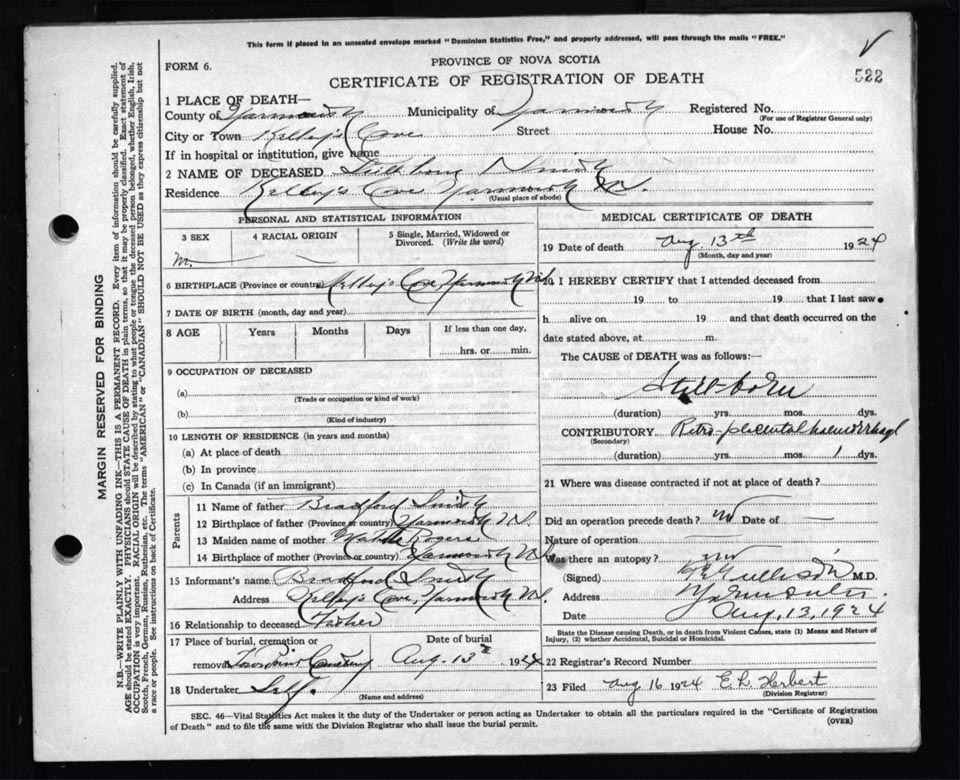 This form if placed in an unsealed envelope marked "Dominion Statistics Free," and properly addressed, will pass through the mails "FREE."
522
FORM 6.
PROVINCE OF NOVA SCOTIA
CERTIFICATE OF REGISTRATION OF DEATH
1 PLACE OF DEATH—
County of Yarmouth Municipality of Yarmouth Registered No.
(For use of Registrar General only)
City or Town Kelley's Cove Street House No.
If in hospital or institution, give name
2 NAME OF DECEASED Still born Smith
Residence Kelley's Cove Yarmouth N.S.
(Usual place of abode)
PERSONAL AND STATISTICAL INFORMATION
3 SEX 4 RACIAL ORIGIN 5 Single, Married, Widowed or Divorced. (Write the word)
M.
6 BIRTHPLACE (Province or country) Kelley's Cove, Yarmouth N.S.
7 DATE OF BIRTH (month, day and year)
8 AGE Years Months Days If less than one day,
hrs. or min.
9 OCCUPATION OF DECEASED
(a)
(Trade or occupation or kind of work)
(b)
(Kind of industry)
10 LENGTH OF RESIDENCE (in years and months)
(a) At place of death
(b) In province
(c) In Canada (if an immigrant)
Parents
11 Name of father Bradford Smith
12 Birthplace of father (Province or country) Yarmouth N.S.
13 Maiden name of mother Rogers
14 Birthplace of mother (Province or country) Yarmouth N.S.
15 Informant's name Bradford Smith
Address Kelley's Cove, Yarmouth N.S.
16 Relationship to deceased Father
17 Place of burial, cremation or Date of burial
removal Cemetery Aug. 13 1924
18 Undertaker Self.
(Name and address)
MEDICAL CERTIFICATE OF DEATH
19 Date of death Aug. 13th 1924
(Month, day and year)
20 I HEREBY CERTIFY that I attended deceased from
19 to 19 that I last saw
h alive on 19 and that death occurred on the
date stated above, at m.
The CAUSE of DEATH was as follows:—
Still-born
(duration) yrs. mos. dys.
CONTRIBUTORY Retro-placental haemorrhage
(Secondary)
(duration) yrs. mos. 1 dys.
21 Where was disease contracted if not at place of death?
Did an operation precede death? no Date of —
Nature of operation —
Was there an autopsy? no
(Signed) M.D.
Address
Date Aug. 13, 1924
State the Disease causing Death, or in death from Violent Causes, state (1) Means and Nature of Injury, (2) whether Accidental, Suicidal or Homicidal.
22 Registrar's Record Number
23 Filed Aug 16 1924 Herbert
(Division Registrar)
SEC. 46—Vital Statistics Act makes it the duty of the Undertaker or person acting as Undertaker to obtain all the particulars required in the "Certificate of Registration
of Death" and to file the same with the Division Registrar who shall issue the burial permit. (OVER)
MARGIN RESERVED FOR BINDING
N.B.—WRITE PLAINLY WITH UNFADING INK—THIS IS A PERMANENT RECORD. Every item of information should be carefully supplied.
AGE should be stated EXACTLY. PHYSICIANS should STATE CAUSE OF DEATH in plain terms, so that it may be properly classified. Exact statement of
OCCUPATION is very important. RACIAL ORIGIN will be described by stating to what people or tongue the deceased person belonged, whether English, Irish,
Scotch, French, German, Russian, Ruthenian, etc. The terms "AMERICAN" or "CANADIAN" SHOULD NOT BE USED as they express citizenship but not
a race or people. See instructions on back of Certificate.